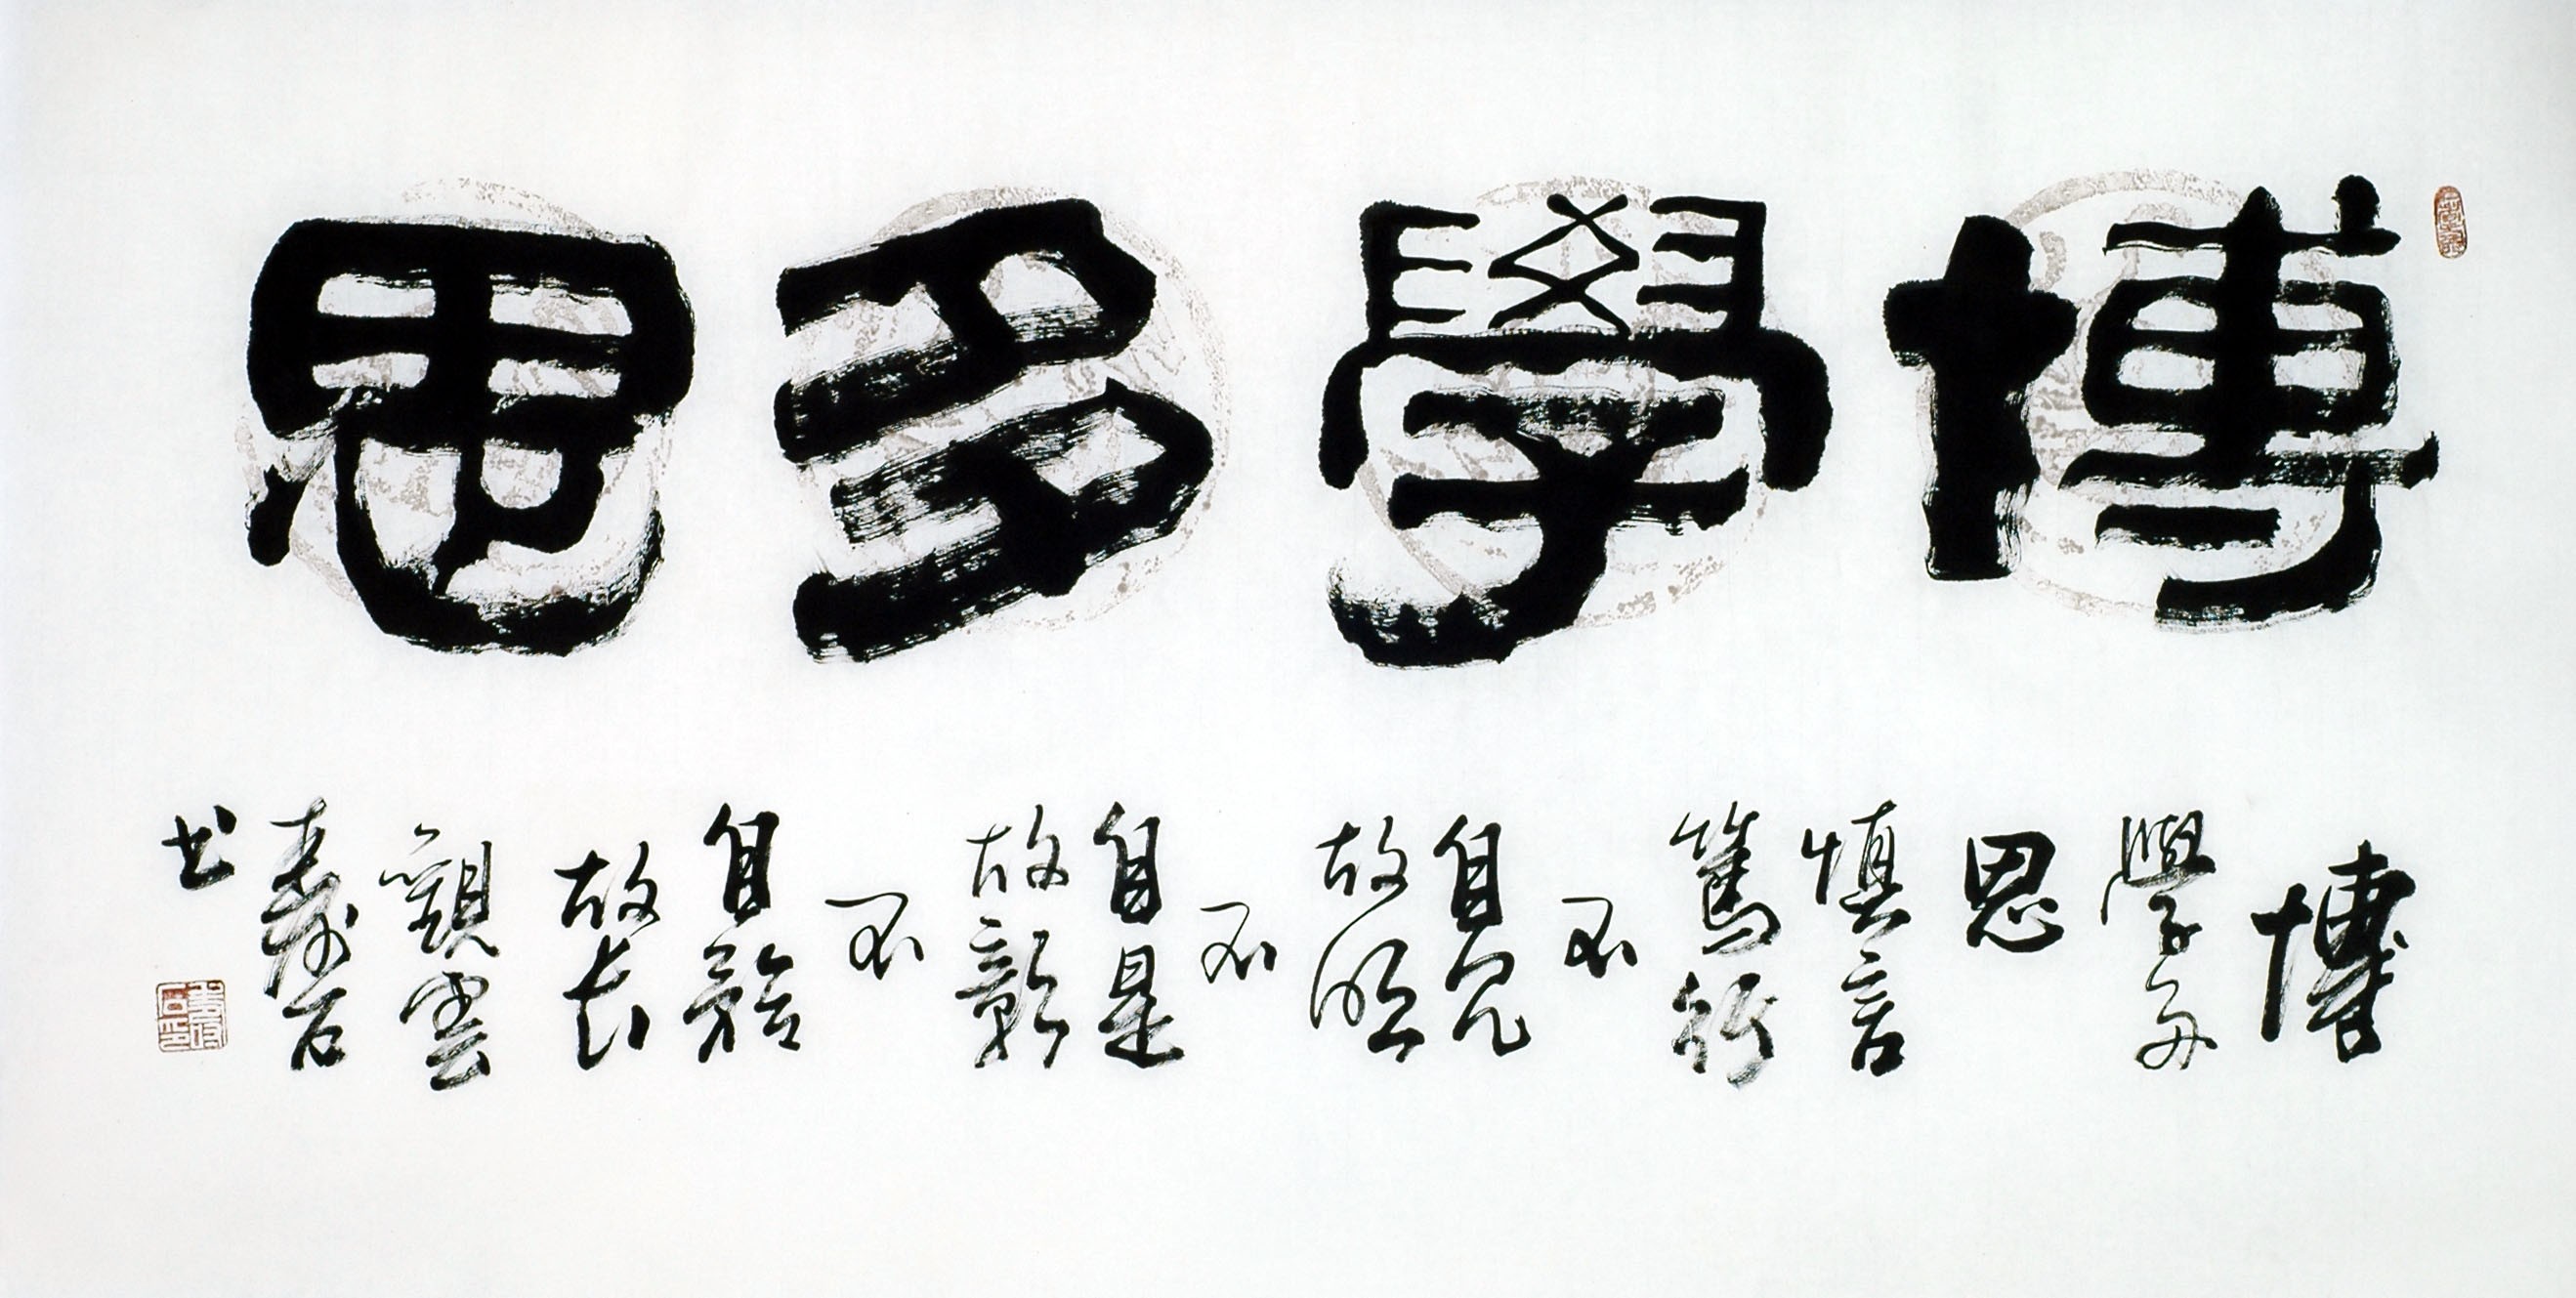 博學多思
博
學多
思
慎言
篤行
不
自見
故明
不
自是
故彰
不
自矜
故長
觀雲
壽石
书